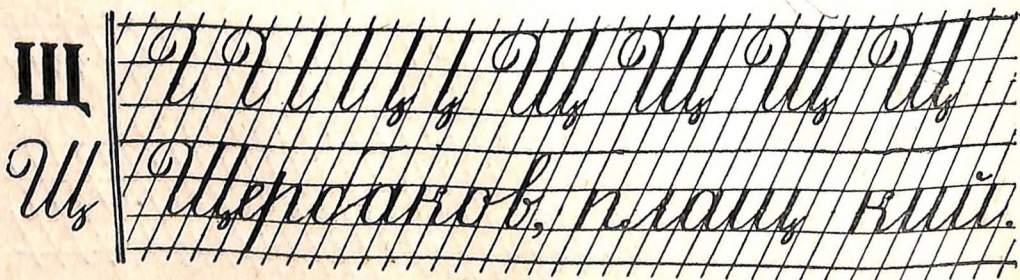 Щ Щ Щ Щ Щ
Щ Щербаков, плащ кий.